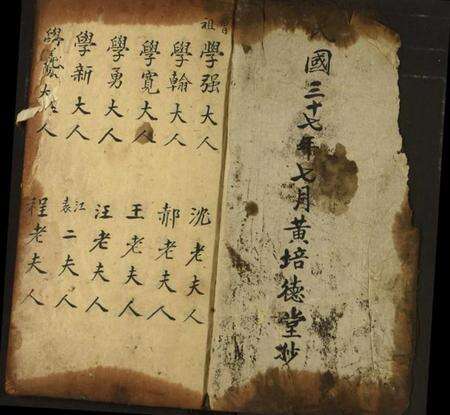 民國三十七年七月黃培德堂抄
曾祖
學强大人
沈老夫人
學翰大人
郝老夫人
學寬大人
王老夫人
學勇大人
汪老夫人
學新大人
江袁二夫人
學大人
程老夫人